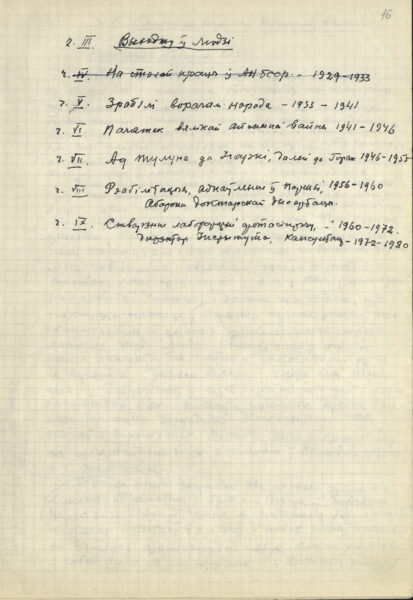 16
ч. III Выходжу ў людзі
ч. IV На сталай працы ў АН БССР - 1929-1933
ч. V Зрабілі ворагам народа - 1933 - 1941
ч. VI Пачатак вялікай айчыннай вайны 1941-1946
ч. VII Ад Тулуна да Ігаркі, далей да 1946-195
ч. VIII Рэабілітацыя, аднаўленне ў партыі, 1956-1960
Абарона доктарскай дысертацыі.
ч. IX Стварэнне лабараторыі фотасінтэзу, - 1960-1972.
Дырэктар Інстытута, Кансультант - 1972-1980